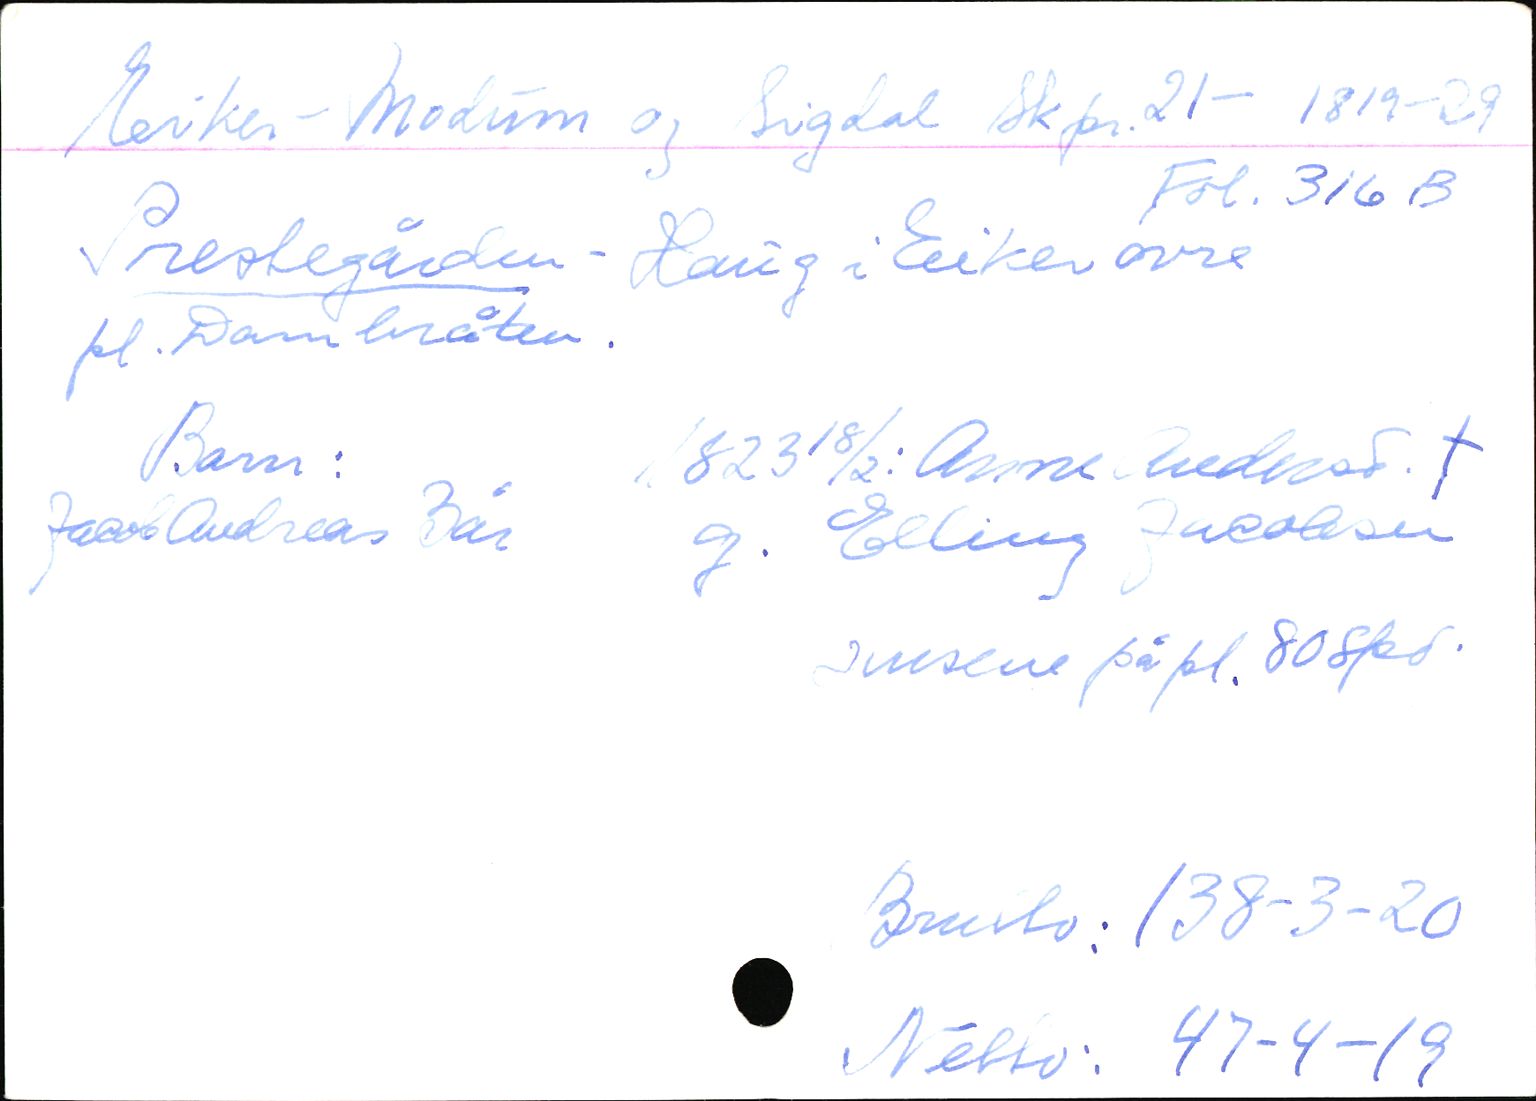 Eiker - Modum og Sigdal Skpr. 21 - 1819-29
Fol. 316 B
Prestegården - Haug i Eiker øvre
pl. Dambråten.
Barn: 1823 18/2: Anne Andersd. †
Jacob Andreas 3 år g. Elling Jacobsen
husene på pl. 80 Spd.
Brutto: 138-3-20
Netto: 47-4-19